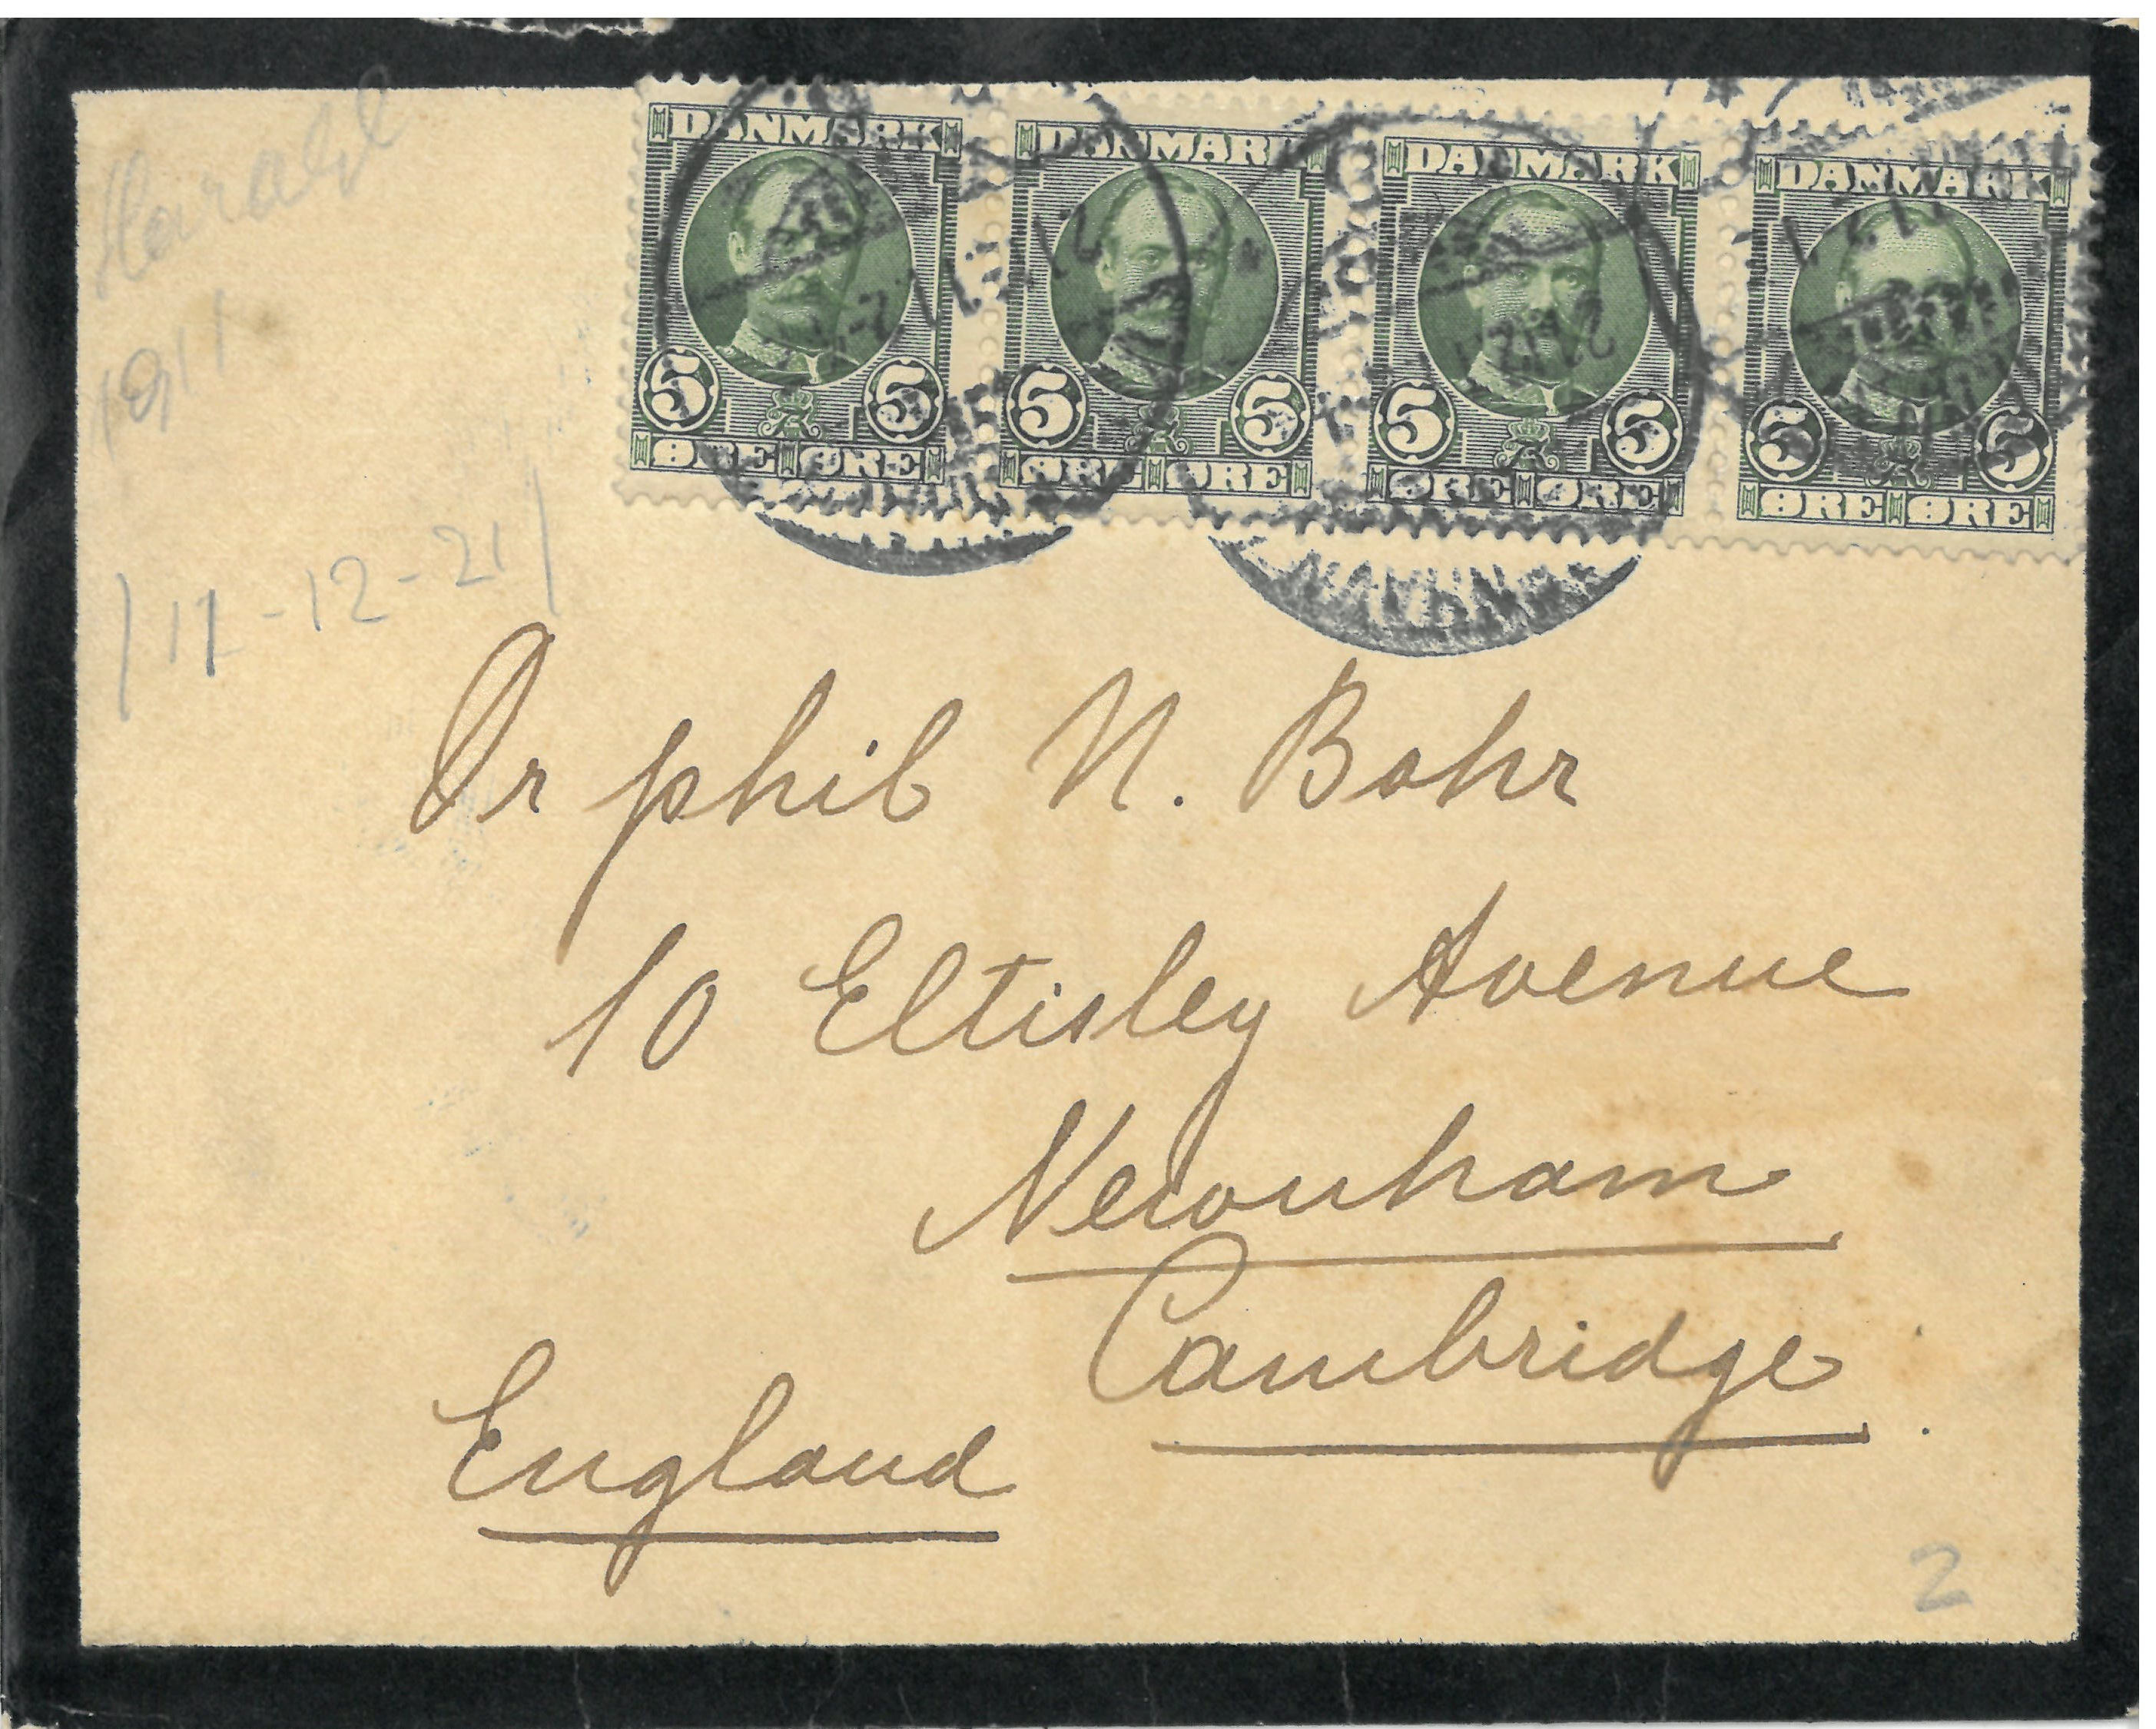 Harald
1911
11-12-21
DANMARK DANMARK DANMARK DANMARK
5 5 5 5 5 5 5 5
ØRE ØRE ØRE ØRE ØRE ØRE ØRE ØRE
Dr phil N. Bohr
10 Eltisley Avenue
Newnham
Cambridge
England
2